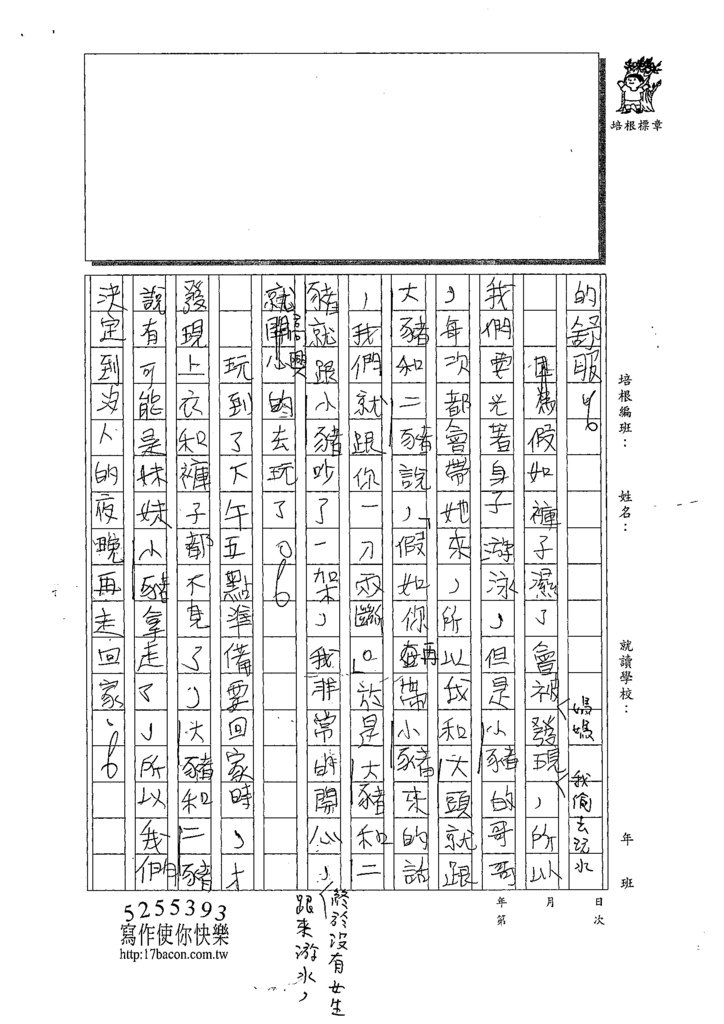 培根標章
培根編班：
姓名：
就讀學校：
年 班
年 月 日
第 次
的舒服。
假如褲子濕了會被媽媽發現我偷去玩水，所以
我們要光著身子游泳，但是小豬的哥哥
，每次都會帶她來，所以我和大頭就跟
大豬和二豬說，「假如你再帶小豬來的話
，我們就跟你一刀兩斷。」於是大豬和二
豬就跟小豬吵了一架，我非常的開心，終於沒有女生跟來游水，
就高興的去玩了。
玩到了下午五點準備要回家時，才
發現上衣和褲子都不見了，大豬和二豬
說有可能是妹妹小豬拿走了，所以我們
決定到沒人的夜晚再走回家。
5255393
寫作使你快樂
http:17bacon.com.tw